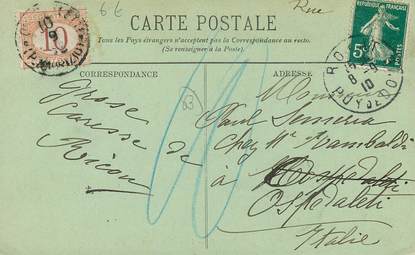 6 6
CARTE POSTALE
Rue
Tous les Pays étrangers n'acceptent pas la Correspondance au recto.
(Se renseigner à la Poste).
CORRESPONDANCE
ADRESSE
10
5c
10
PUY DE DOME
Grosse
Caresse de
Ricou
83
Monsieur
Paul Semeria
Chez Mr Rambaldi
à Ospedaletti
Ospedaleti
Italie